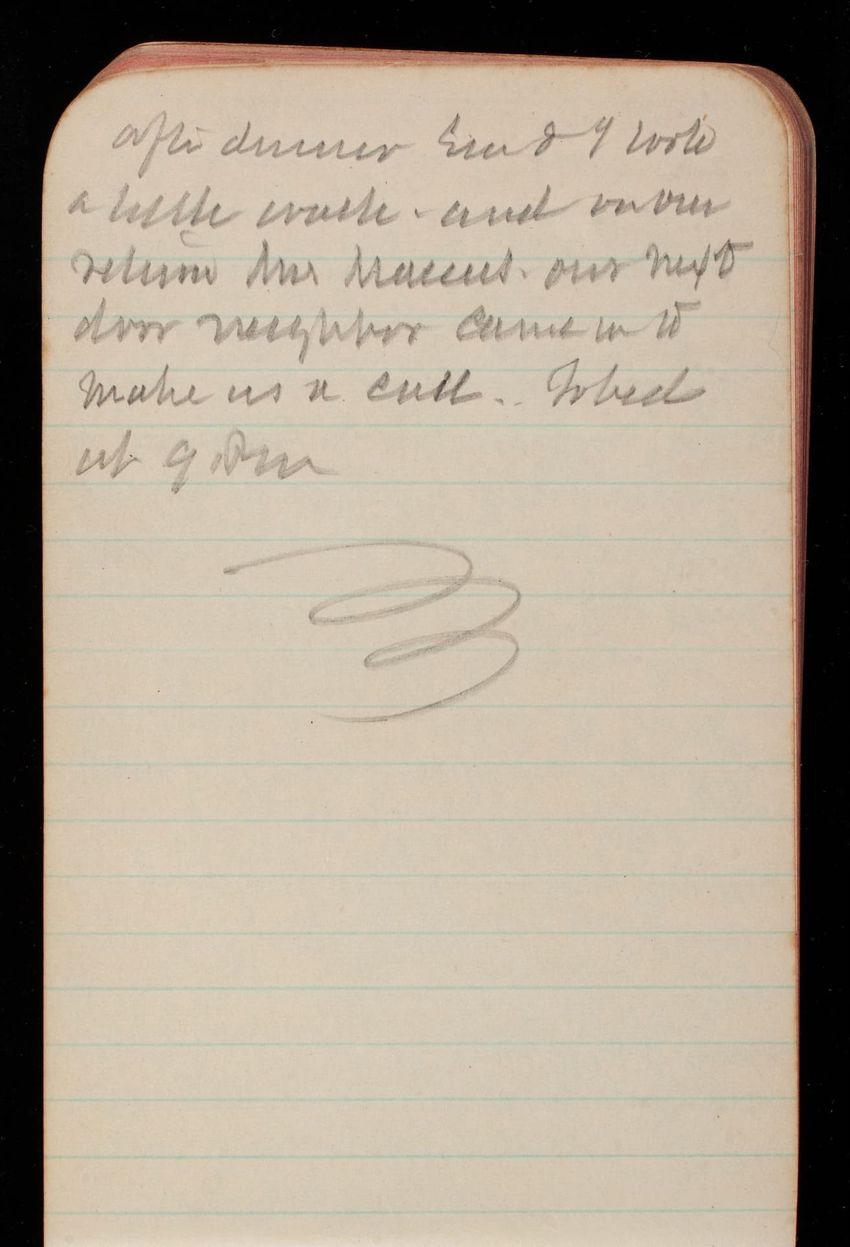 after dinner Em & I took
a little walk. and on our
return Mrs our next
door neighbor came in to
make us a call.. To bed
at 9 PM